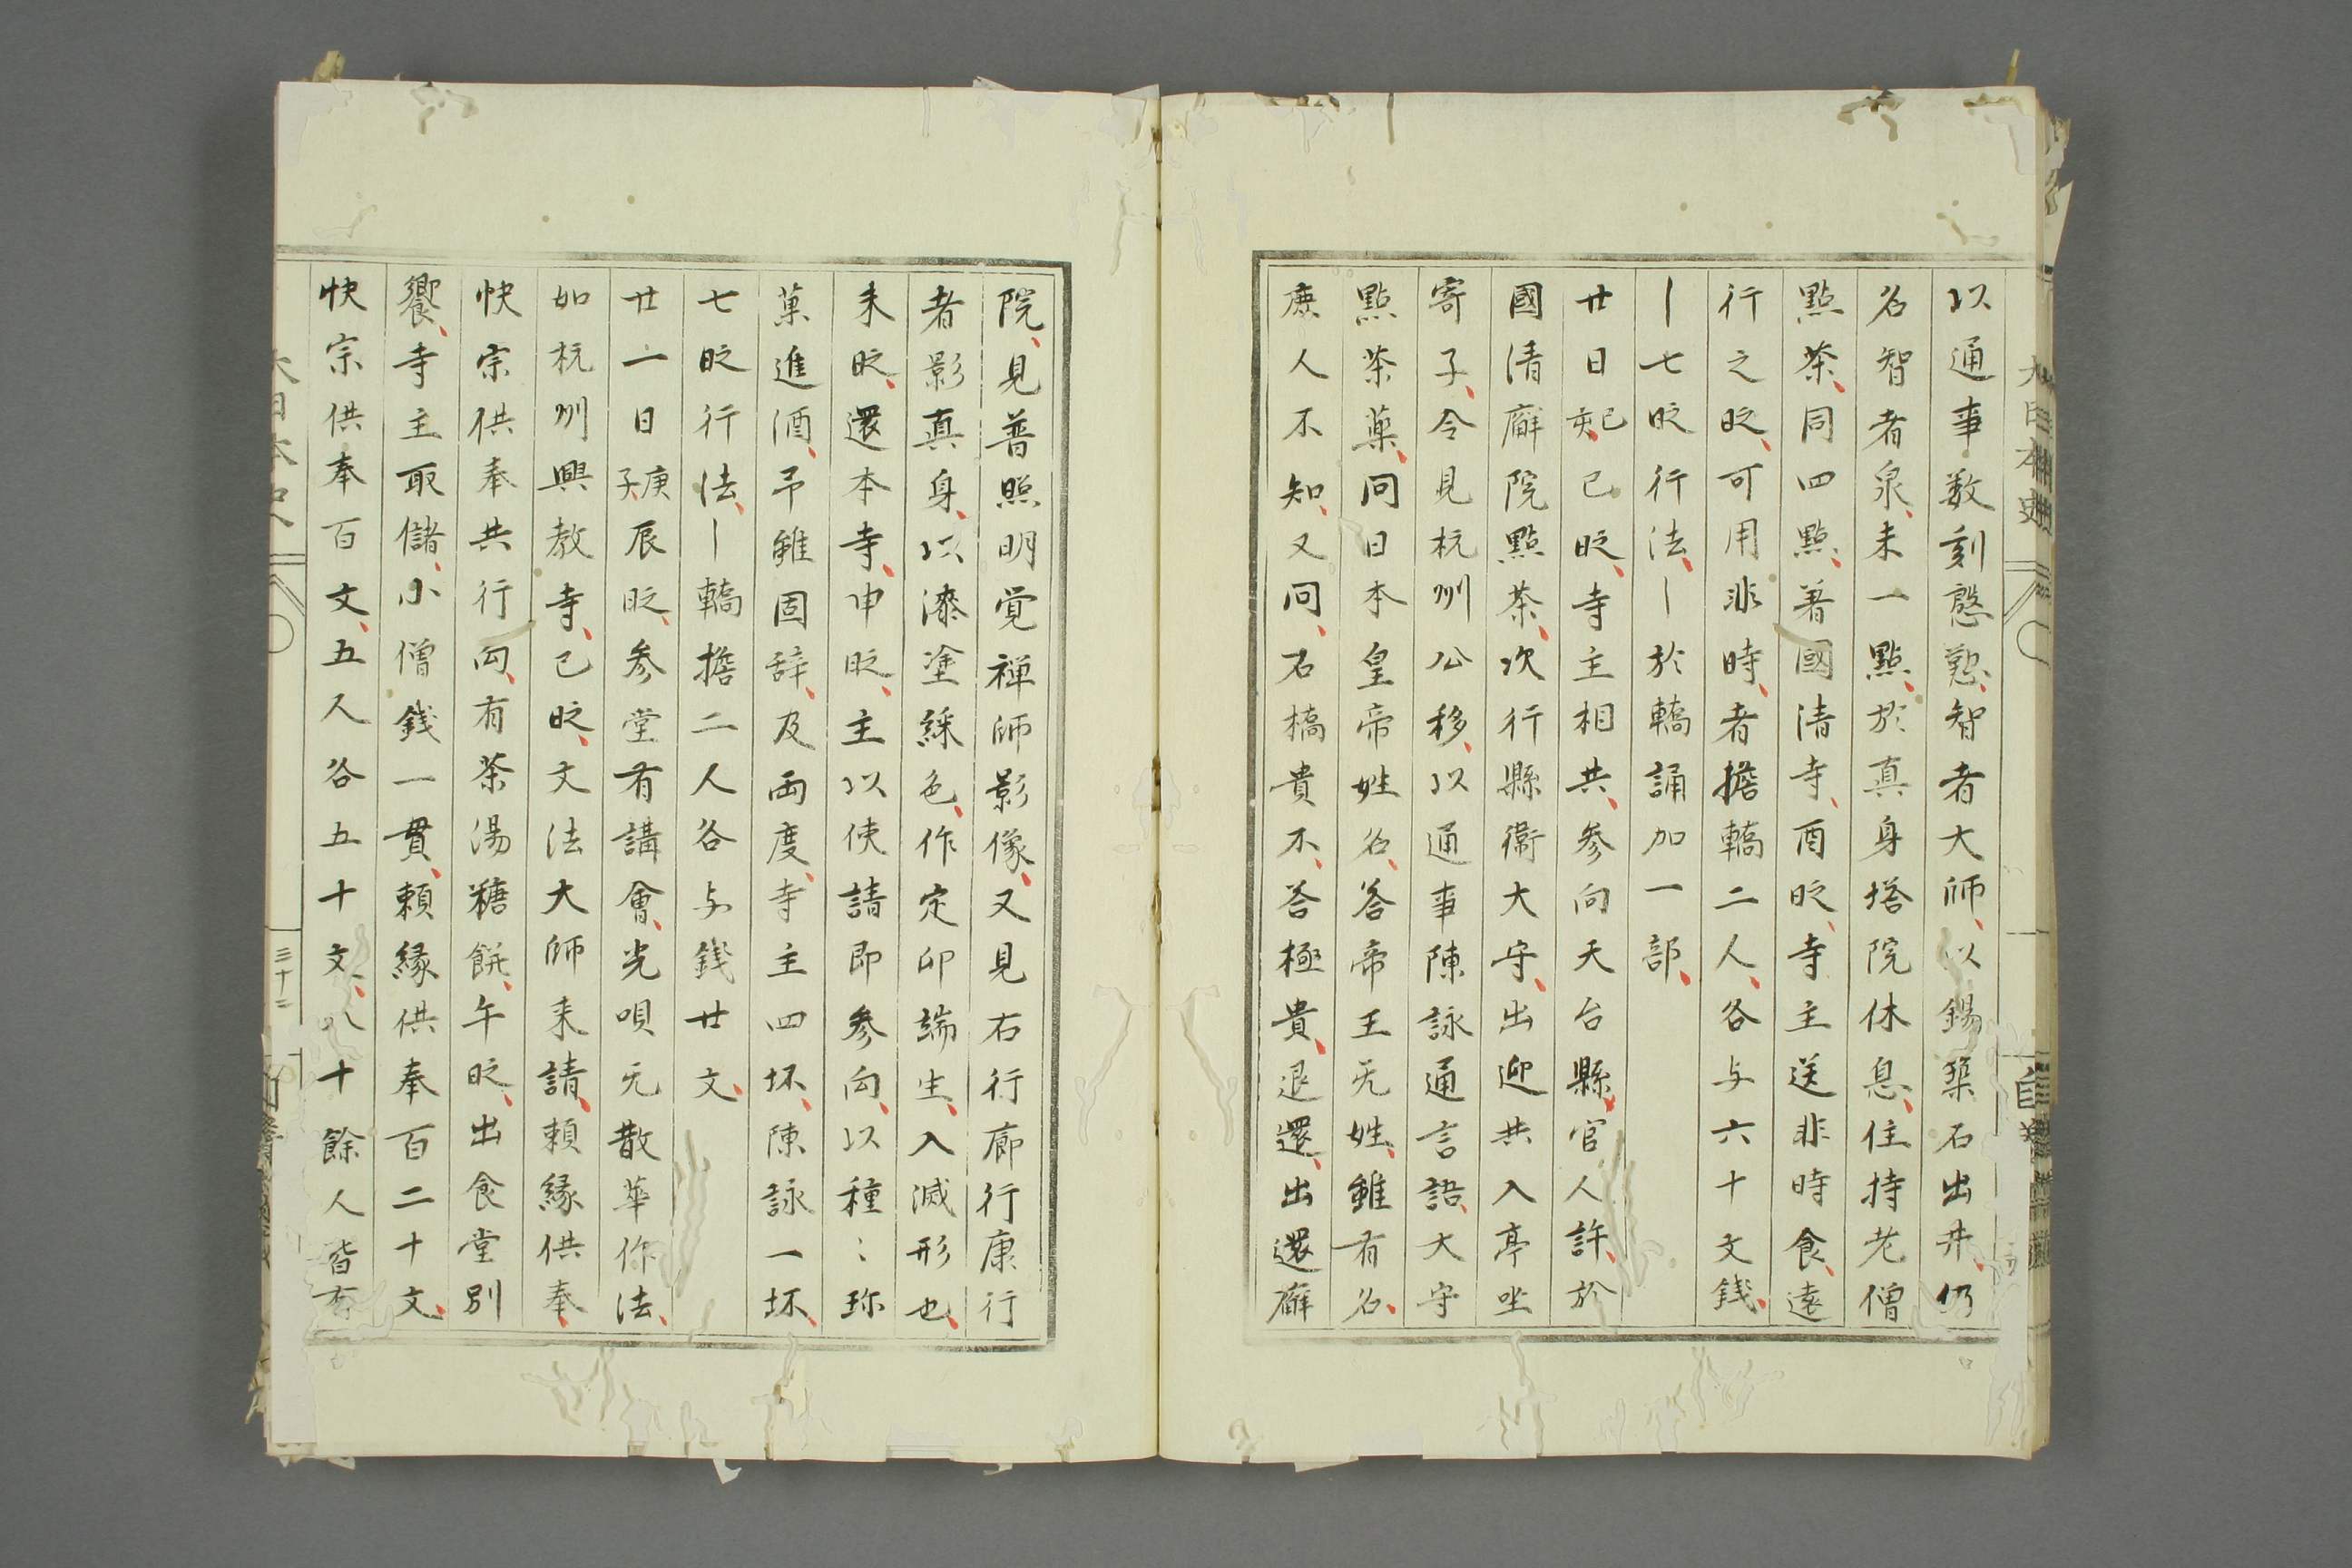 以通事数刻慇懃、智者大師、以錫築石出井、仍
名智者泉、未一點、於真身塔院休息、住持老僧
點茶、同四點、著國清寺、酉時、寺主送非時食、遠
行之時、可用非時、者擔轎二人、各与六十文錢、
〡七時行法、〡於轎誦加一部、
廿日己亥、己時、寺主相共、参向天台縣、官人許、於
國清廨院點茶、次行縣衙大守、出迎共入亭坐
寄子、令見杭州公移、以通事陳詠通言語、大守
點茶藥、問日本皇帝姓名、答帝王无姓、雖有名、
庶人不知、又問、石橋貴不、答極貴、退還、出還廨
院、見普照明覚禅師影像、又見右行廊行康行
者影真身、以漆塗綵色、作定印端坐、入滅形也、
未時、還本寺、申時、主以使請即参向、以種〻珎
菓進酒、予雖固辞、及両度、寺主四坏、陳詠一坏、
七時行法、〡轎擔二人各与錢廿文、
廿一日庚子、辰時、参堂有講會、光唄无散華作法、
如杭州興教寺、己時、文法大師来請、頼縁供奉、
快宗供奉共行向、有茶湯糖餅、午時、出食堂別
饗、寺主取儲、小僧錢一貫、頼縁供奉百二十文、
快宗供奉百文、五人各五十文、八十餘人皆有
大日本史
三十二